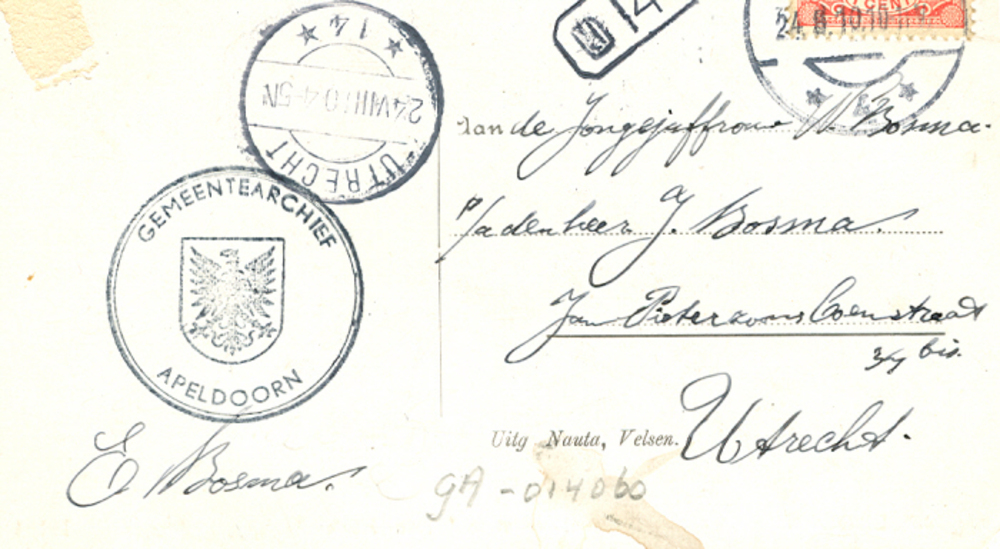 CENT
24.8.10 10
14
UTRECHT
24 VIII 10 4-5N
14
Aan de Jongejuffrouw W Bosma.
p/a den heer J. Bosma.
Jan Pieterzoons Coenstraat
bis.
Utrecht.
GEMEENTEARCHIEF
APELDOORN
E Bosma.
Uitg Nauta, Velsen.
gA - 014060